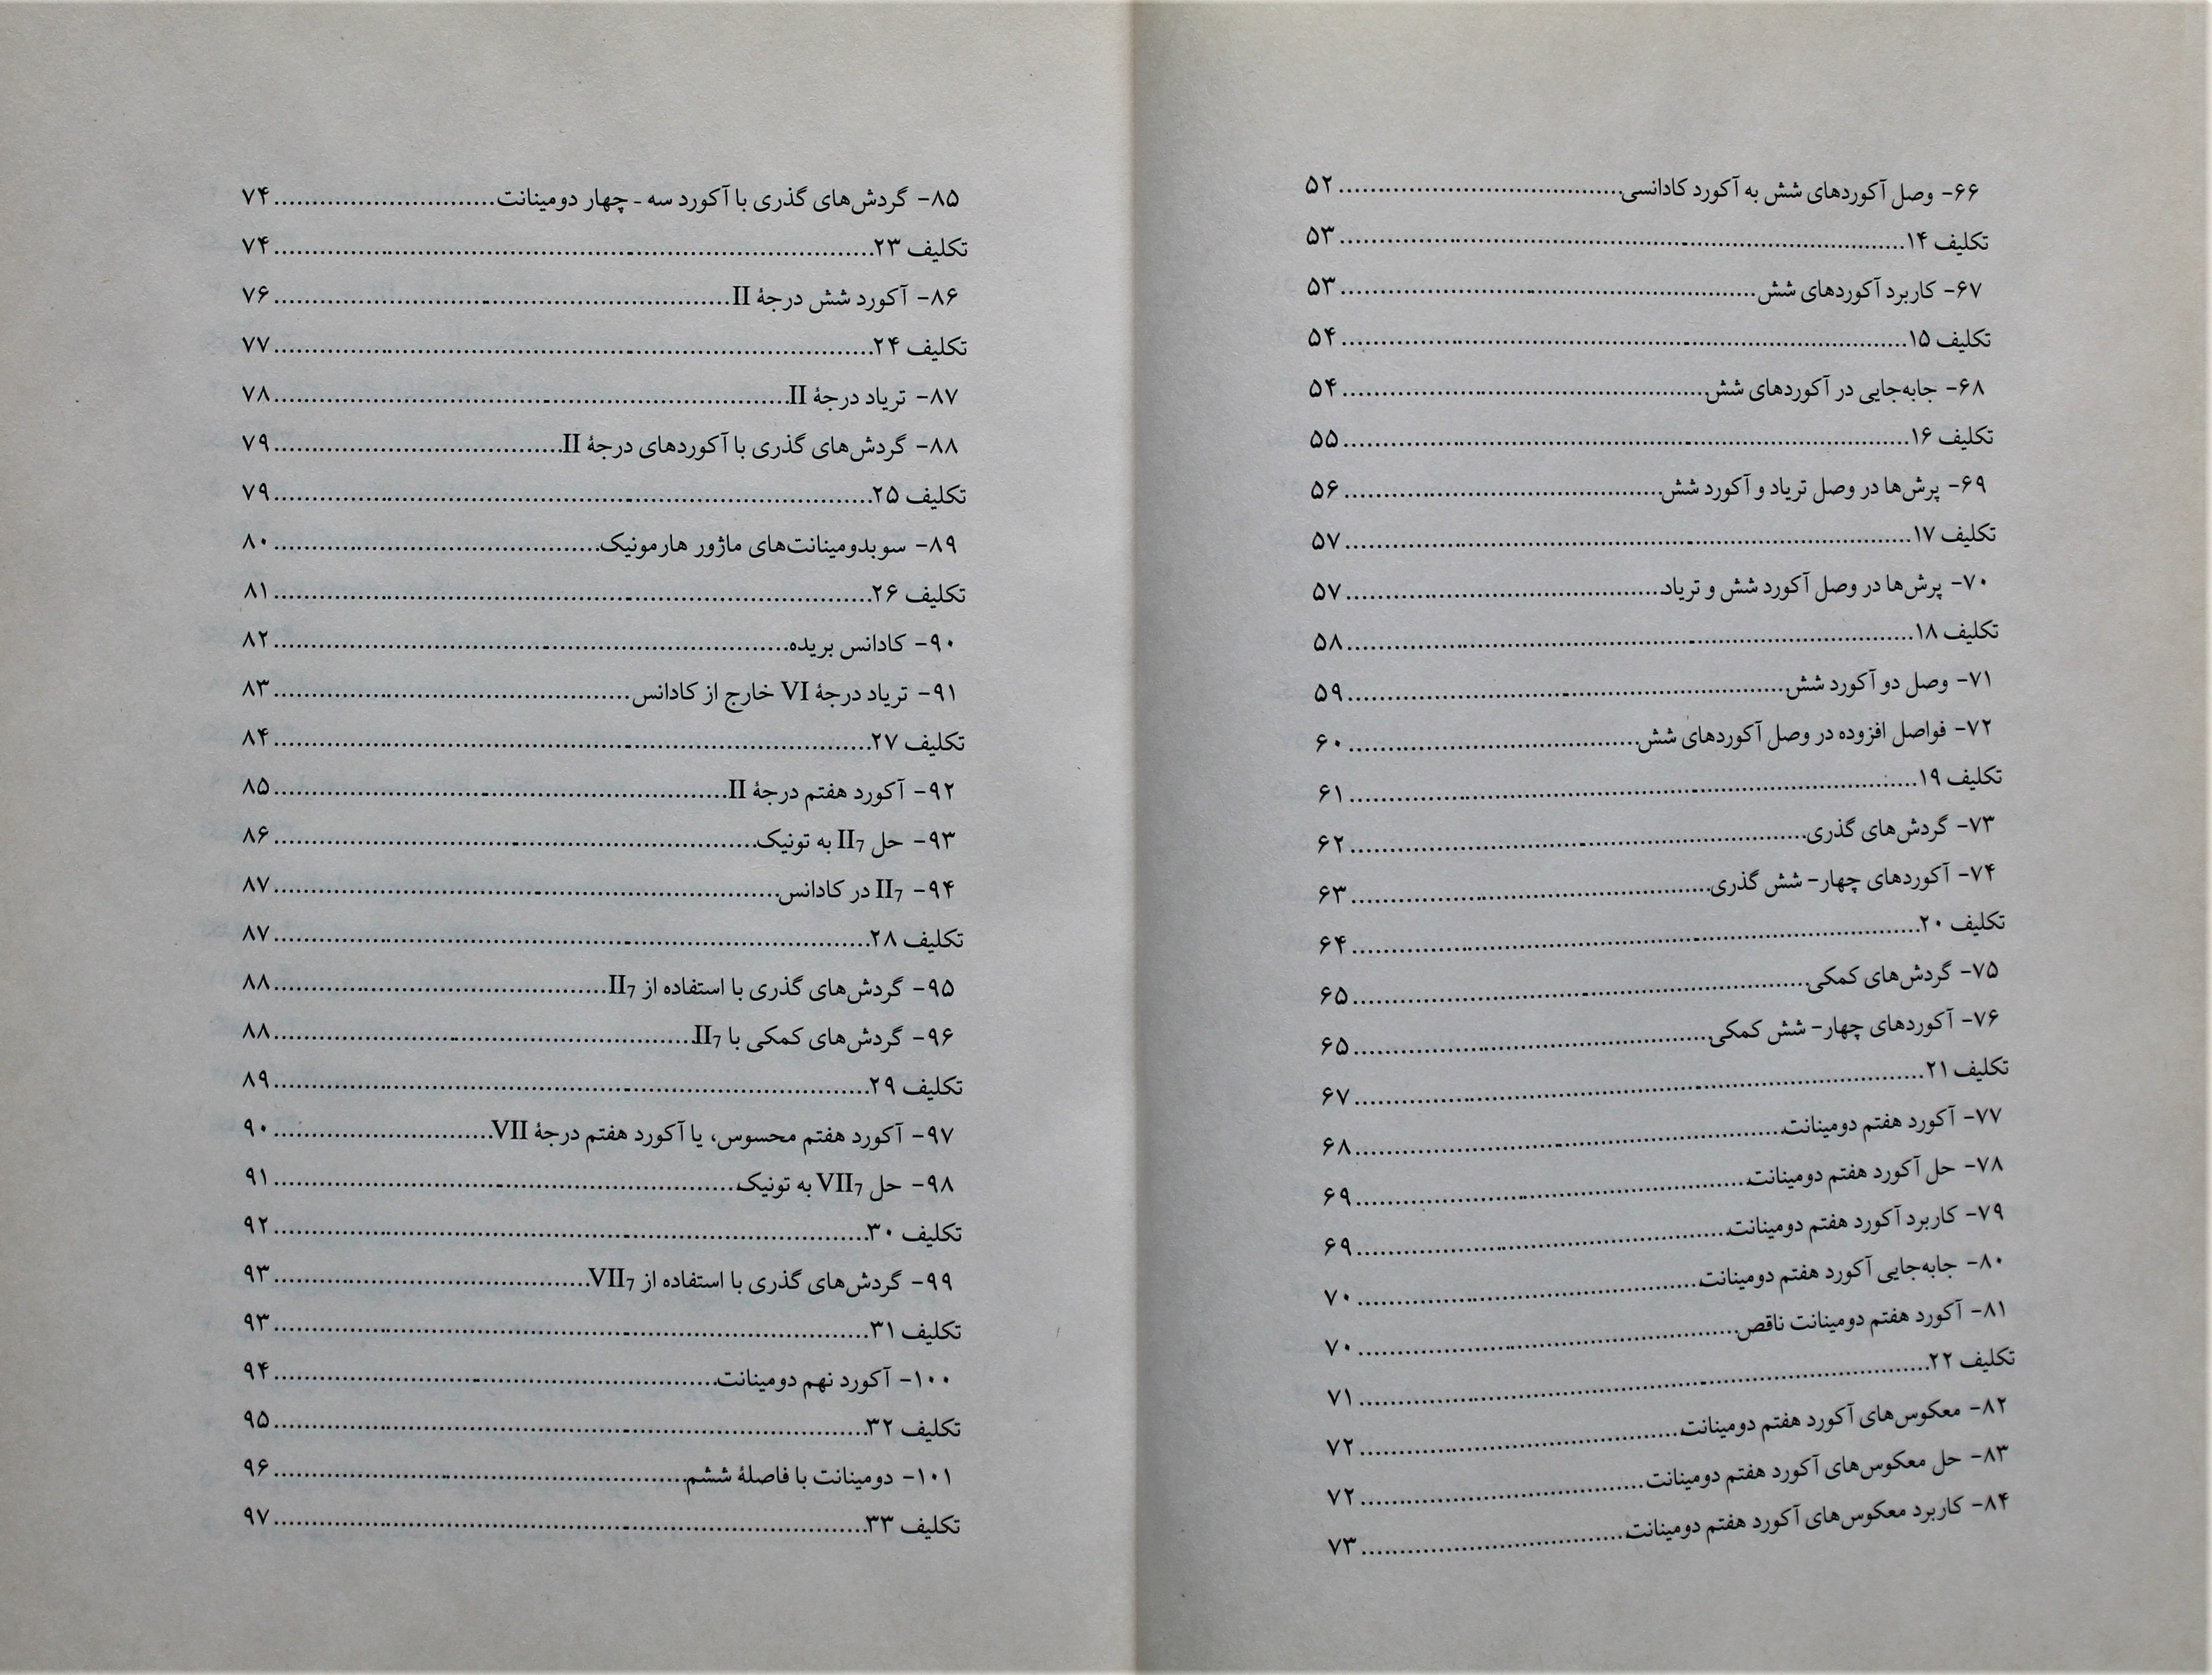 ۶۶- وصل آکوردهای شش به آکورد کادانسی......۵۲
تکلیف ۱۴......۵۳
۶۷- کاربرد آکوردهای شش......۵۳
تکلیف ۱۵......۵۴
۶۸- جابه‌جایی در آکوردهای شش......۵۴
تکلیف ۱۶......۵۵
۶۹- پرش‌ها در وصل تریاد و آکورد شش......۵۶
تکلیف ۱۷......۵۷
۷۰- پرش‌ها در وصل آکورد شش و تریاد......۵۷
تکلیف ۱۸......۵۸
۷۱- وصل دو آکورد شش......۵۹
۷۲- فواصل افزوده در وصل آکوردهای شش......۶۰
تکلیف ۱۹......۶۱
۷۳- گردش‌های گذری......۶۲
۷۴- آکوردهای چهار- شش گذری......۶۳
تکلیف ۲۰......۶۴
۷۵- گردش‌های کمکی......۶۵
۷۶- آکوردهای چهار- شش کمکی......۶۵
تکلیف ۲۱......۶۷
۷۷- آکورد هفتم دومینانت......۶۸
۷۸- حل آکورد هفتم دومینانت......۶۹
۷۹- کاربرد آکورد هفتم دومینانت......۶۹
۸۰- جابه‌جایی آکورد هفتم دومینانت......۷۰
۸۱- آکورد هفتم دومینانت ناقص......۷۰
تکلیف ۲۲......۷۱
۸۲- معکوس‌های آکورد هفتم دومینانت......۷۲
۸۳- حل معکوس‌های آکورد هفتم دومینانت......۷۲
۸۴- کاربرد معکوس‌های آکورد هفتم دومینانت......۷۳
۸۵- گردش‌های گذری با آکورد سه - چهار دومینانت......۷۴
تکلیف ۲۳......۷۴
۸۶- آکورد شش درجهٔ II......۷۶
تکلیف ۲۴......۷۷
۸۷- تریاد درجهٔ II......۷۸
۸۸- گردش‌های گذری با آکوردهای درجهٔ II......۷۹
تکلیف ۲۵......۷۹
۸۹- سوبدومینانت‌های ماژور هارمونیک......۸۰
تکلیف ۲۶......۸۱
۹۰- کادانس بریده......۸۲
۹۱- تریاد درجهٔ VI خارج از کادانس......۸۳
تکلیف ۲۷......۸۴
۹۲- آکورد هفتم درجهٔ II......۸۵
۹۳- حل II₇ به تونیک......۸۶
۹۴- II₇ در کادانس......۸۷
تکلیف ۲۸......۸۷
۹۵- گردش‌های گذری با استفاده از II₇......۸۸
۹۶- گردش‌های کمکی با II₇......۸۸
تکلیف ۲۹......۸۹
۹۷- آکورد هفتم محسوس، یا آکورد هفتم درجهٔ VII......۹۰
۹۸- حل VII₇ به تونیک......۹۱
تکلیف ۳۰......۹۲
۹۹- گردش‌های گذری با استفاده از VII₇......۹۳
تکلیف ۳۱......۹۳
۱۰۰- آکورد نهم دومینانت......۹۴
تکلیف ۳۲......۹۵
۱۰۱- دومینانت با فاصلهٔ ششم......۹۶
تکلیف ۳۳......۹۷